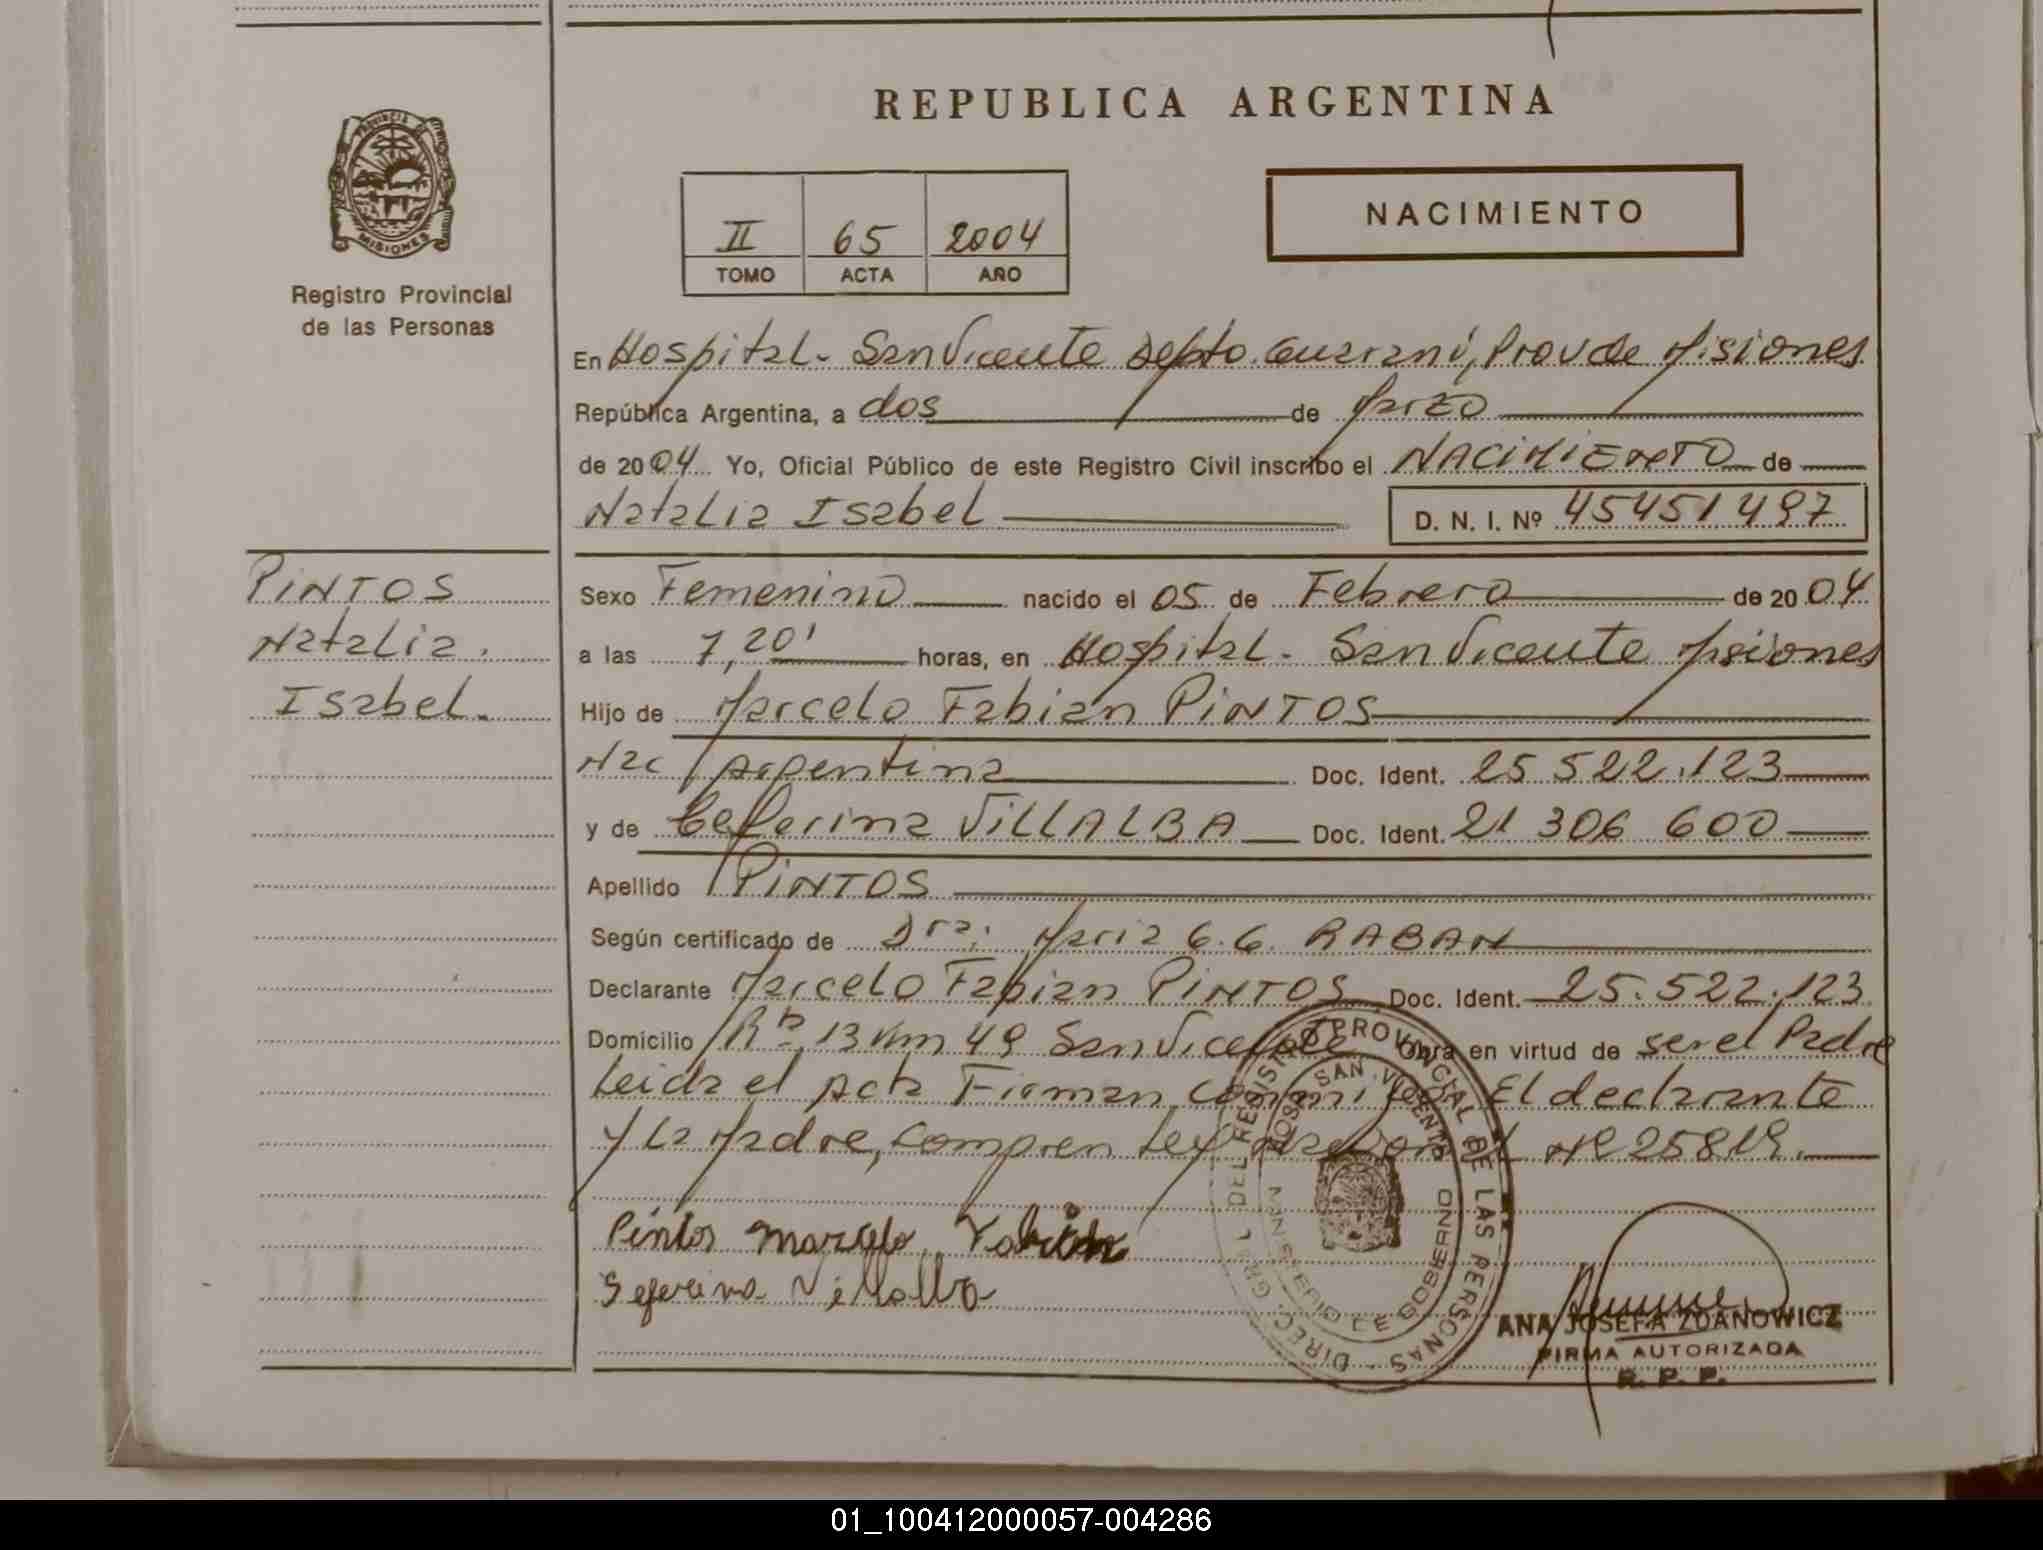 REPUBLICA ARGENTINA
PROVINCIA DE
MISIONES
Registro Provincial
de las Personas
II 65 2004
TOMO ACTA AÑO
NACIMIENTO
En Hospital - San Vicente Depto. Guaraní, Prov de Misiones
República Argentina, a dos de Marzo
de 2004 Yo, Oficial Público de este Registro Civil inscribo el NACIMIENTO de
Natalia Isabel D. N. I. Nº 45451497
PINTOS
Natalia
Isabel.
Sexo Femenino nacido el 05 de Febrero de 2004
a las 7,20' horas, en Hospital - San Vicente Misiones
Hijo de Marcelo Fabian PINTOS
Nac Argentina Doc. Ident. 25 522.123
y de Ceferina VILLALBA Doc. Ident. 21 306 600
Apellido PINTOS
Según certificado de Dra: Maria G.G. RABAN
Declarante Marcelo Fabian PINTOS Doc. Ident. 25.522.123
Domicilio Rta 13 Km 49 San Vicente Obra en virtud de ser el Padre
Leida el Acta Firman conmigo El declarante
y la Madre, compren Ley Nº 25819.
Pintos Marcelo Fabian
Seferina Villalba
DIREC. GRAL. DEL REGISTRO PROVINCIAL DE LAS PERSONAS
HOSP. SAN VICENTE
MINISTERIO DE GOBIERNO
ANA JOSEFA ZDANOWICZ
FIRMA AUTORIZADA
R. P. P.
01_100412000057-004286